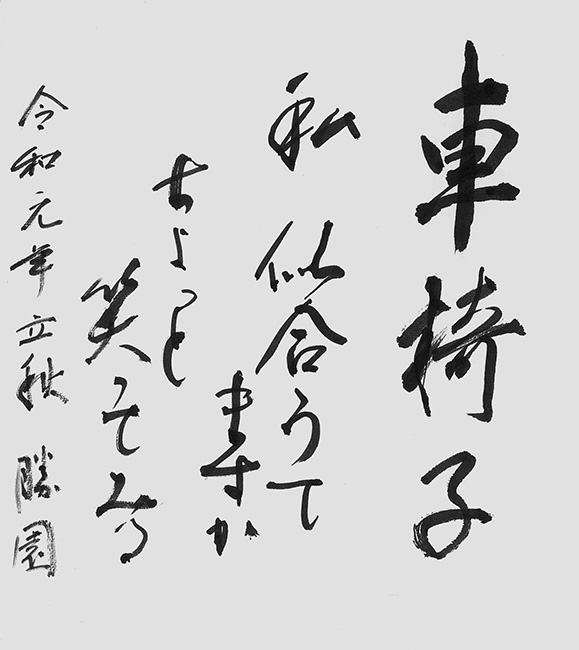 車椅子
私 似合うて
ますか
ちょっと
笑ってみる
令和元年立秋 勝園